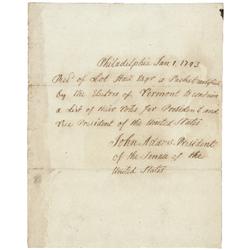 Philadelphia Jan 1. 1793
Recd. of Lot Hall Esqr a Packet certified
by the Electors of Vermont to contain
a List of their Votes for President and
Vice President of the United States
John Adams President
of the Senate of the
United States